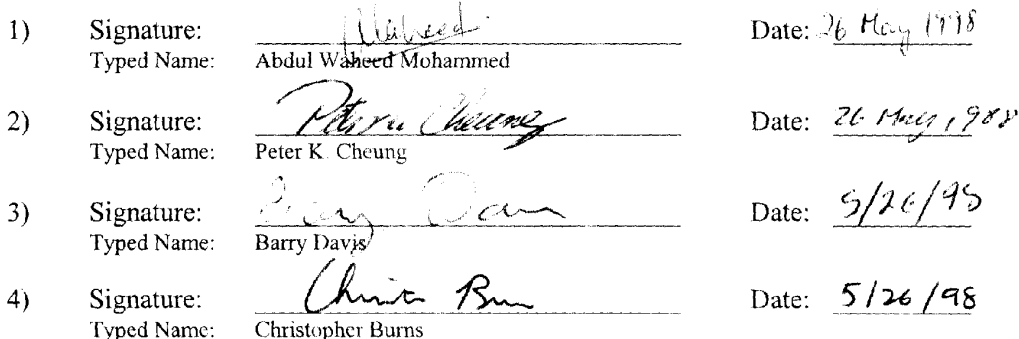 1) Signature: Waheed Date: 26 May 1998
Typed Name: Abdul Waheed Mohammed
2) Signature: Peter K Cheung Date: 26 May, 988
Typed Name: Peter K. Cheung
3) Signature: Barry Davis Date: 5/26/98
Typed Name: Barry Davis
4) Signature: Date: 5/26/98
Typed Name: Christopher Burns